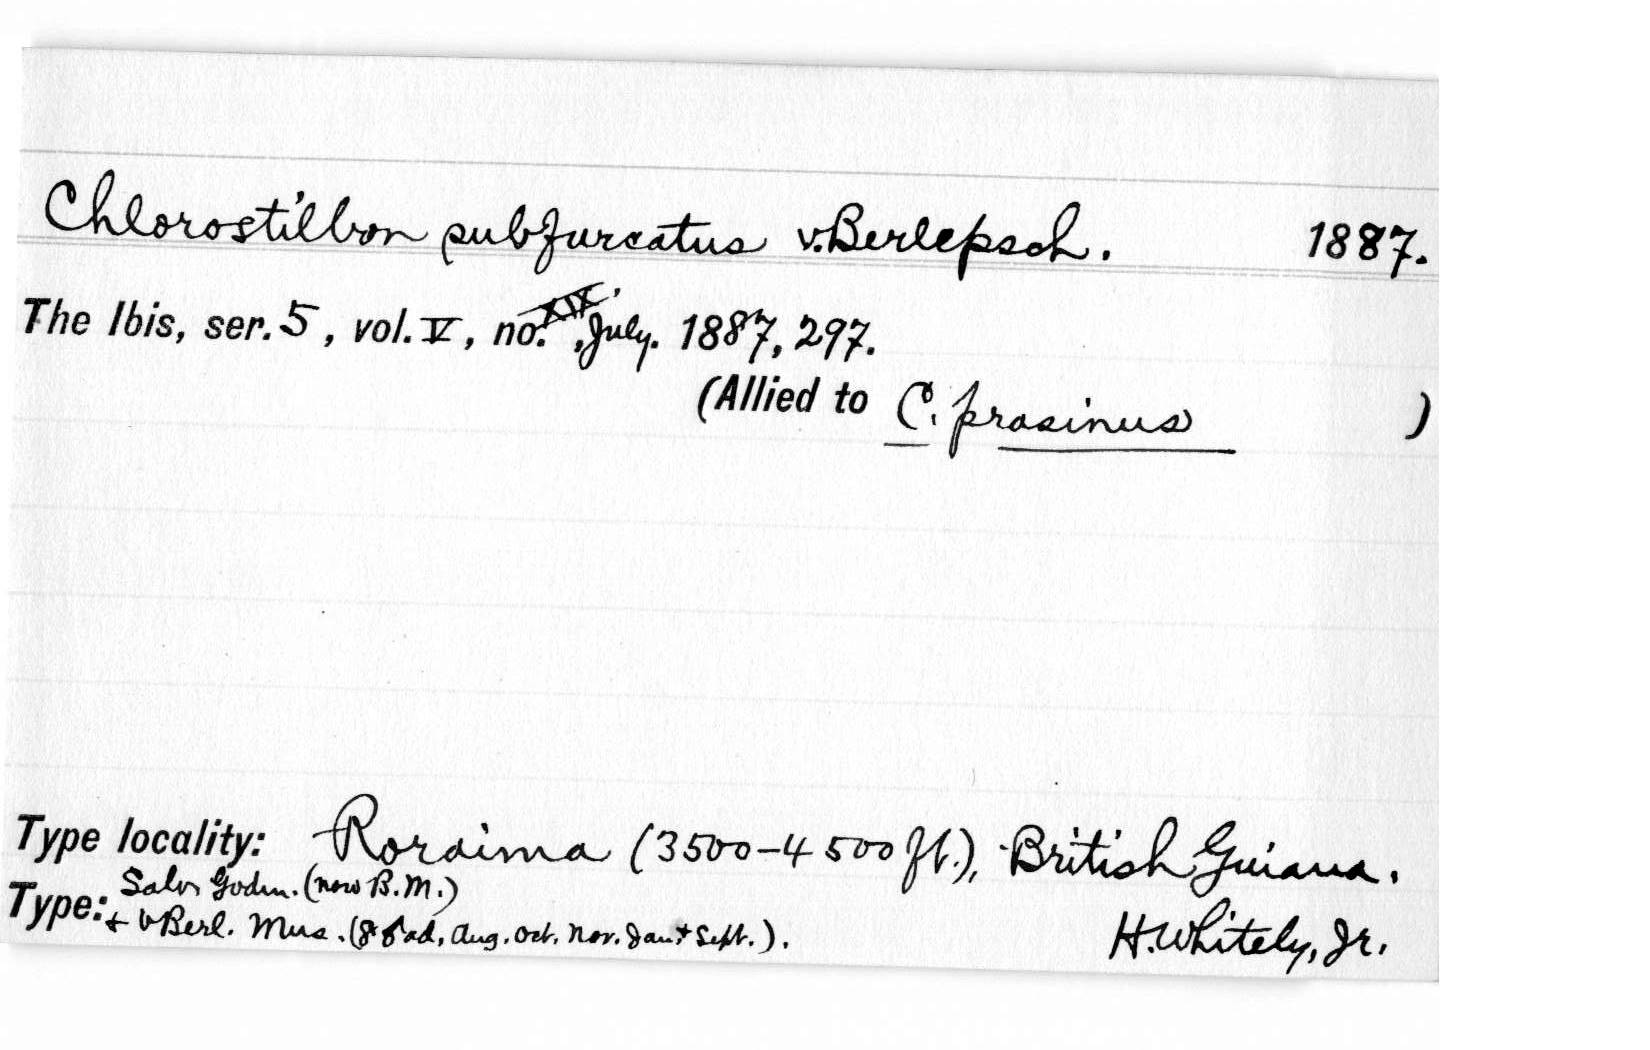 Chlorostilbon subfurcatus v.Berlepsch. 1887.
The Ibis, ser. 5, vol. V, no. XIX, July. 1887, 297.
(Allied to C. prasinus )
Type locality: Roraima (3500-4500 ft.), British Guiana.
Type: Salv. Godm. (now B.M.)
+ v Berl. Mus. (8 ♂ ad, Aug. Oct. Nov. Jan + Sept.).
H. Whitely, Jr.